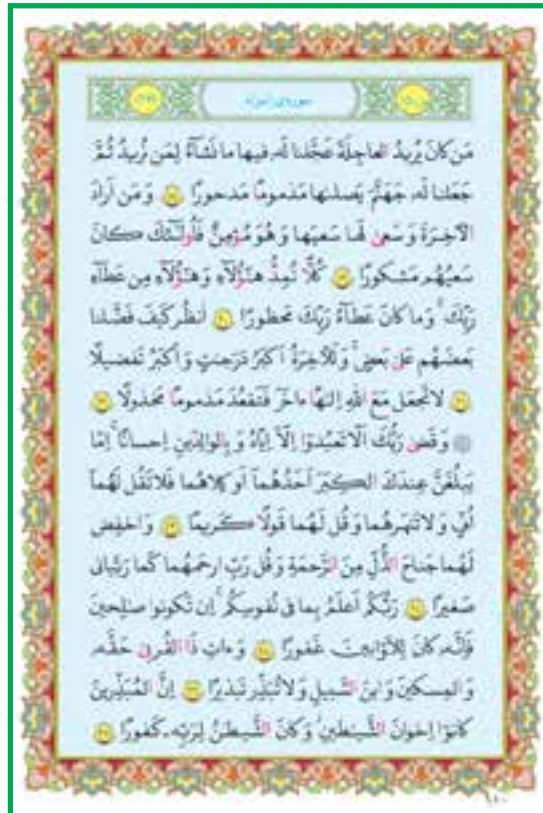 مَن كانَ يُريدُ العاجِلَةَ عَجَّلنا لَهُ فيها ما نَشاءُ لِمَن نُريدُ ثُمَّ
جَعَلنا لَهُ جَهَنَّمَ يَصلىٰها مَذمومًا مَدحورًا ﴿١٨﴾ وَ مَن اَرادَ
الآخِرَةَ وَ سَعىٰ لَها سَعيَها وَ هُوَ مُؤمِنٌ فَاُولٰئِكَ كانَ
سَعيُهُم مَشكورًا ﴿١٩﴾ كُلًّا نُمِدُّ هٰؤُلاءِ وَ هٰؤُلاءِ مِن عَطاءِ
رَبِّكَ ۚ وَ ما كانَ عَطاءُ رَبِّكَ مَحظورًا ﴿٢٠﴾ اُنظُر كَيفَ فَضَّلنا
بَعضَهُم عَلىٰ بَعضٍ ۚ وَ لَلآخِرَةُ اَكبَرُ دَرَجٰتٍ وَ اَكبَرُ تَفضيلًا
﴿٢١﴾ لا تَجعَل مَعَ اللّٰهِ اِلٰهًا ءاخَرَ فَتَقعُدَ مَذمومًا مَخذولًا ﴿٢٢﴾
۞ وَ قَضىٰ رَبُّكَ اَلّا تَعبُدوا اِلّا اِيّاهُ وَ بِالوالِدَينِ اِحسانًا ۚ اِمّا
يَبلُغَنَّ عِندَكَ الكِبَرَ اَحَدُهُما اَو كِلاهُما فَلا تَقُل لَهُما
اُفٍّ وَ لا تَنهَرهُما وَ قُل لَهُما قَولًا كَريمًا ﴿٢٣﴾ وَ اخفِض
لَهُما جَناحَ الذُّلِّ مِنَ الرَّحمَةِ وَ قُل رَبِّ ارحَمهُما كَما رَبَّيانى
صَغيرًا ﴿٢٤﴾ رَبُّكُم اَعلَمُ بِما فى نُفوسِكُم ۚ اِن تَكونوا صٰلِحينَ
فَاِنَّهُ كانَ لِلاَوّابينَ غَفورًا ﴿٢٥﴾ وَ ءاتِ ذَا القُربىٰ حَقَّهُ
وَ المِسكينَ وَ ابنَ السَّبيلِ وَ لا تُبَذِّر تَبذيرًا ﴿٢٦﴾ اِنَّ المُبَذِّرينَ
كانوا اِخوانَ الشَّيٰطينِ ۖ وَ كانَ الشَّيطٰنُ لِرَبِّهِ كَفورًا ﴿٢٧﴾